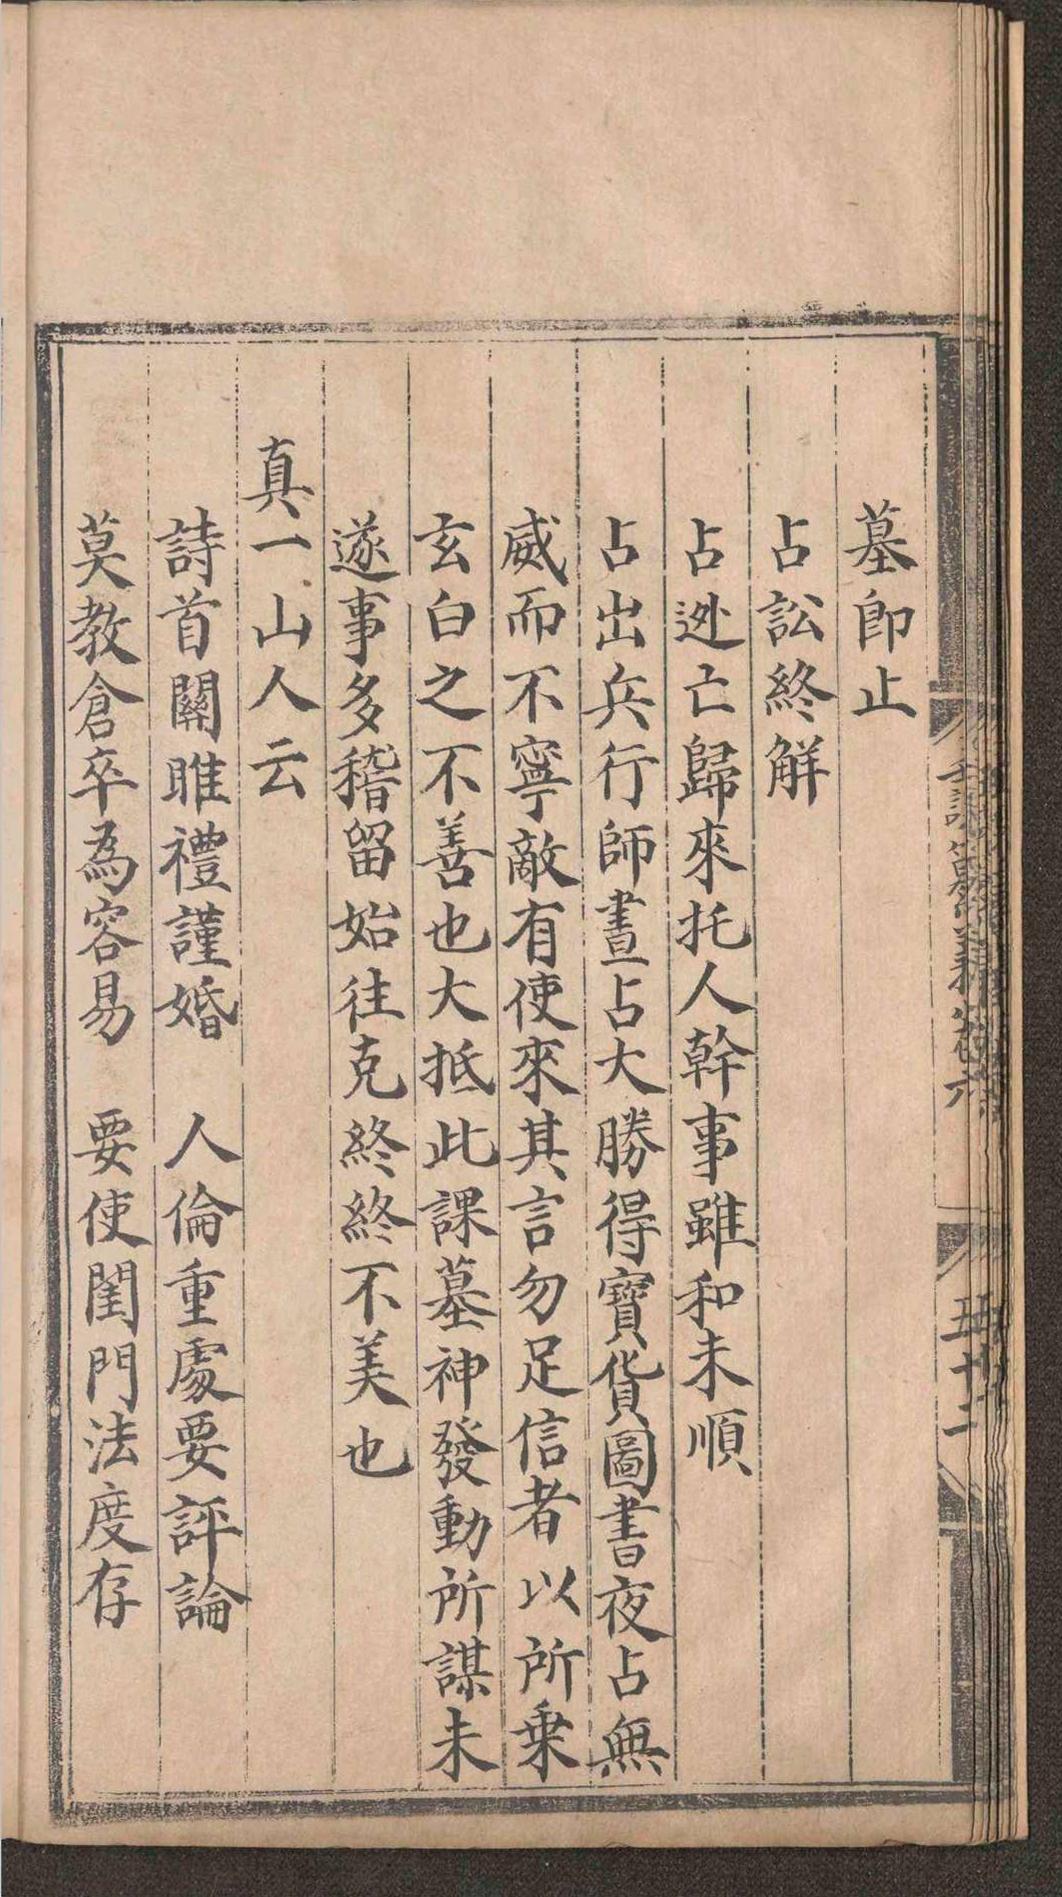 墓即止
占訟終解
占迯亡歸來托人幹事雖和未順
占出兵行師晝占大勝得寶貨圖書夜占無
威而不寧敵有使來其言勿足信者以所乗
玄白之不善也大抵此課墓神發動所謀未
遂事多稽留始往克終終不美也
真一山人云
詩首關睢禮謹婚　人倫重處要評論
莫教倉卒為容易　要使閨門法度存
五十二